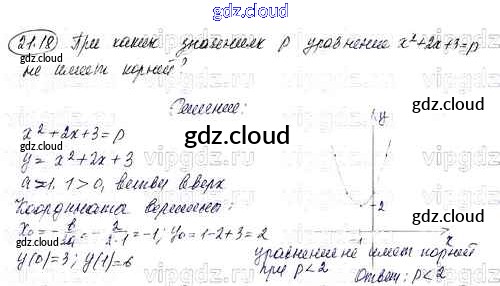 gdz.cloud
21.18 При каких значениях р уравнение x²+2x+3=p
не имеет корней?
gdz.cloud
Решение:
x²+2x+3=p
gdz.cloud
y= x²+2x+3
a=1, 1>0, ветви вверх
Координата вершины:
x₀ = -b/2a = -2/2·1 = -1; y₀=1-2+3=2
y(0)=3; y(1)=6
y
2
-1
x
уравнение не имеет корней
при p<2
Ответ: p<2
gdz.cloud
gdz.cloud
gdz.cloud
vipgdz.com
vipgdz.com
vipgdz.com